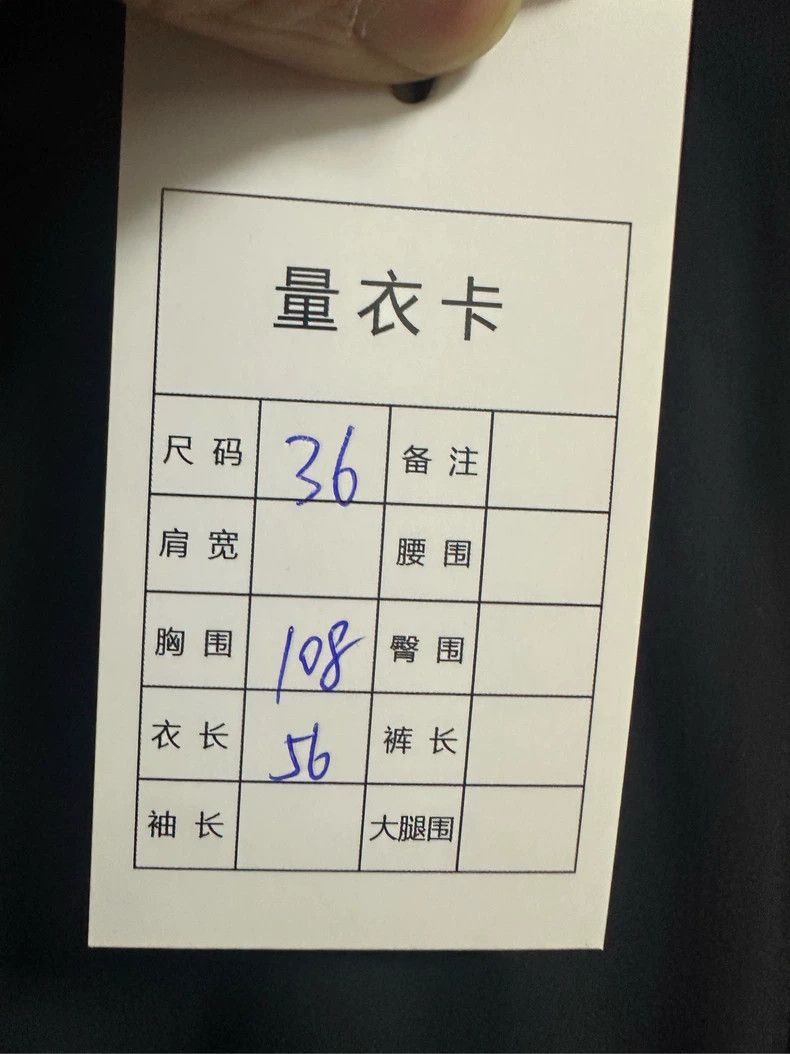 量衣卡
尺码 36 备注
肩宽 腰围
胸围 108 臀围
衣长 56 裤长
袖长 大腿围